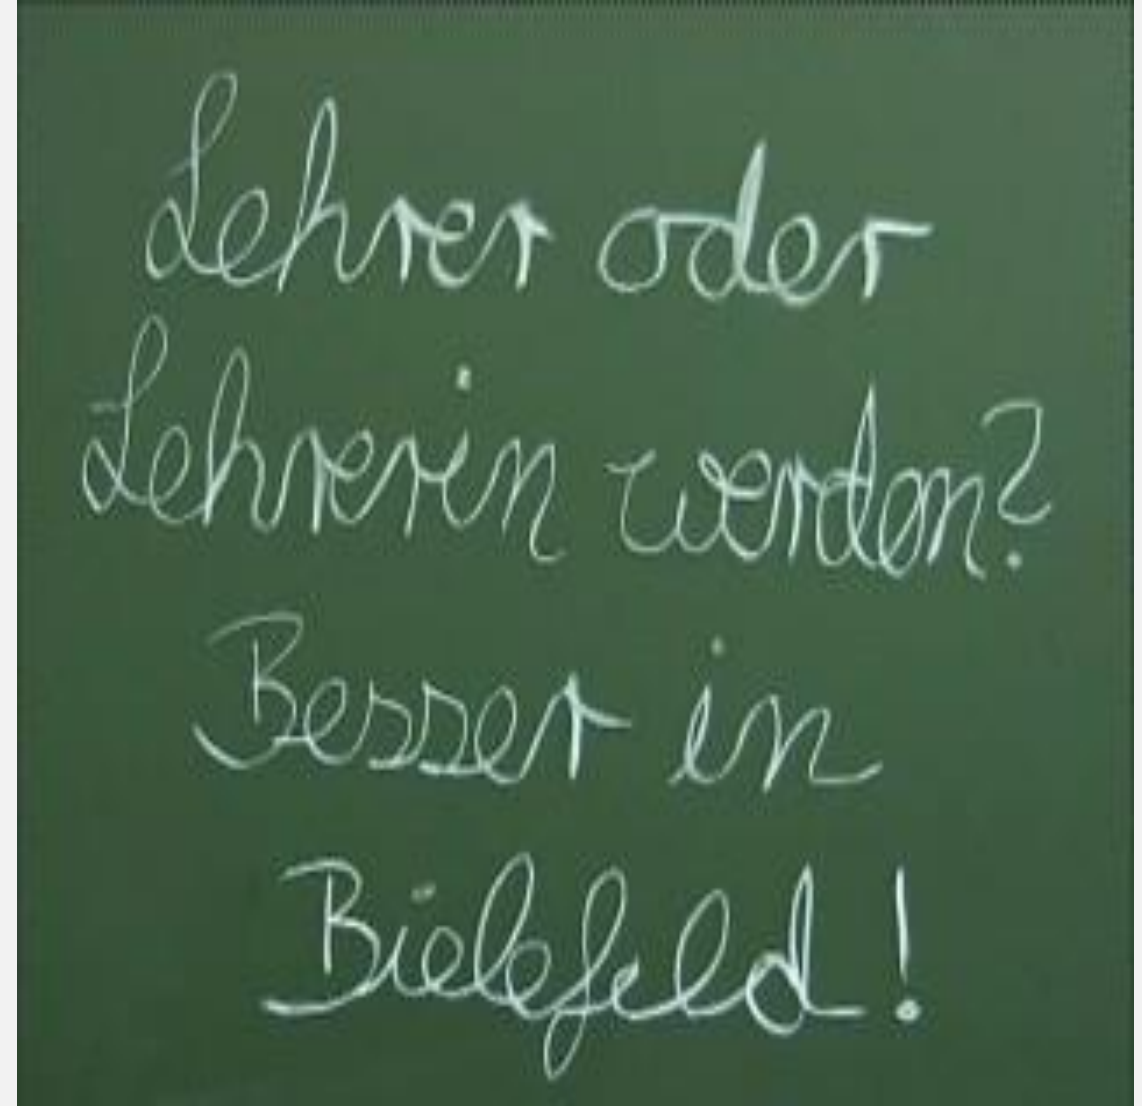 Lehrer oder
Lehrerin werden?
Besser in
Bielefeld!